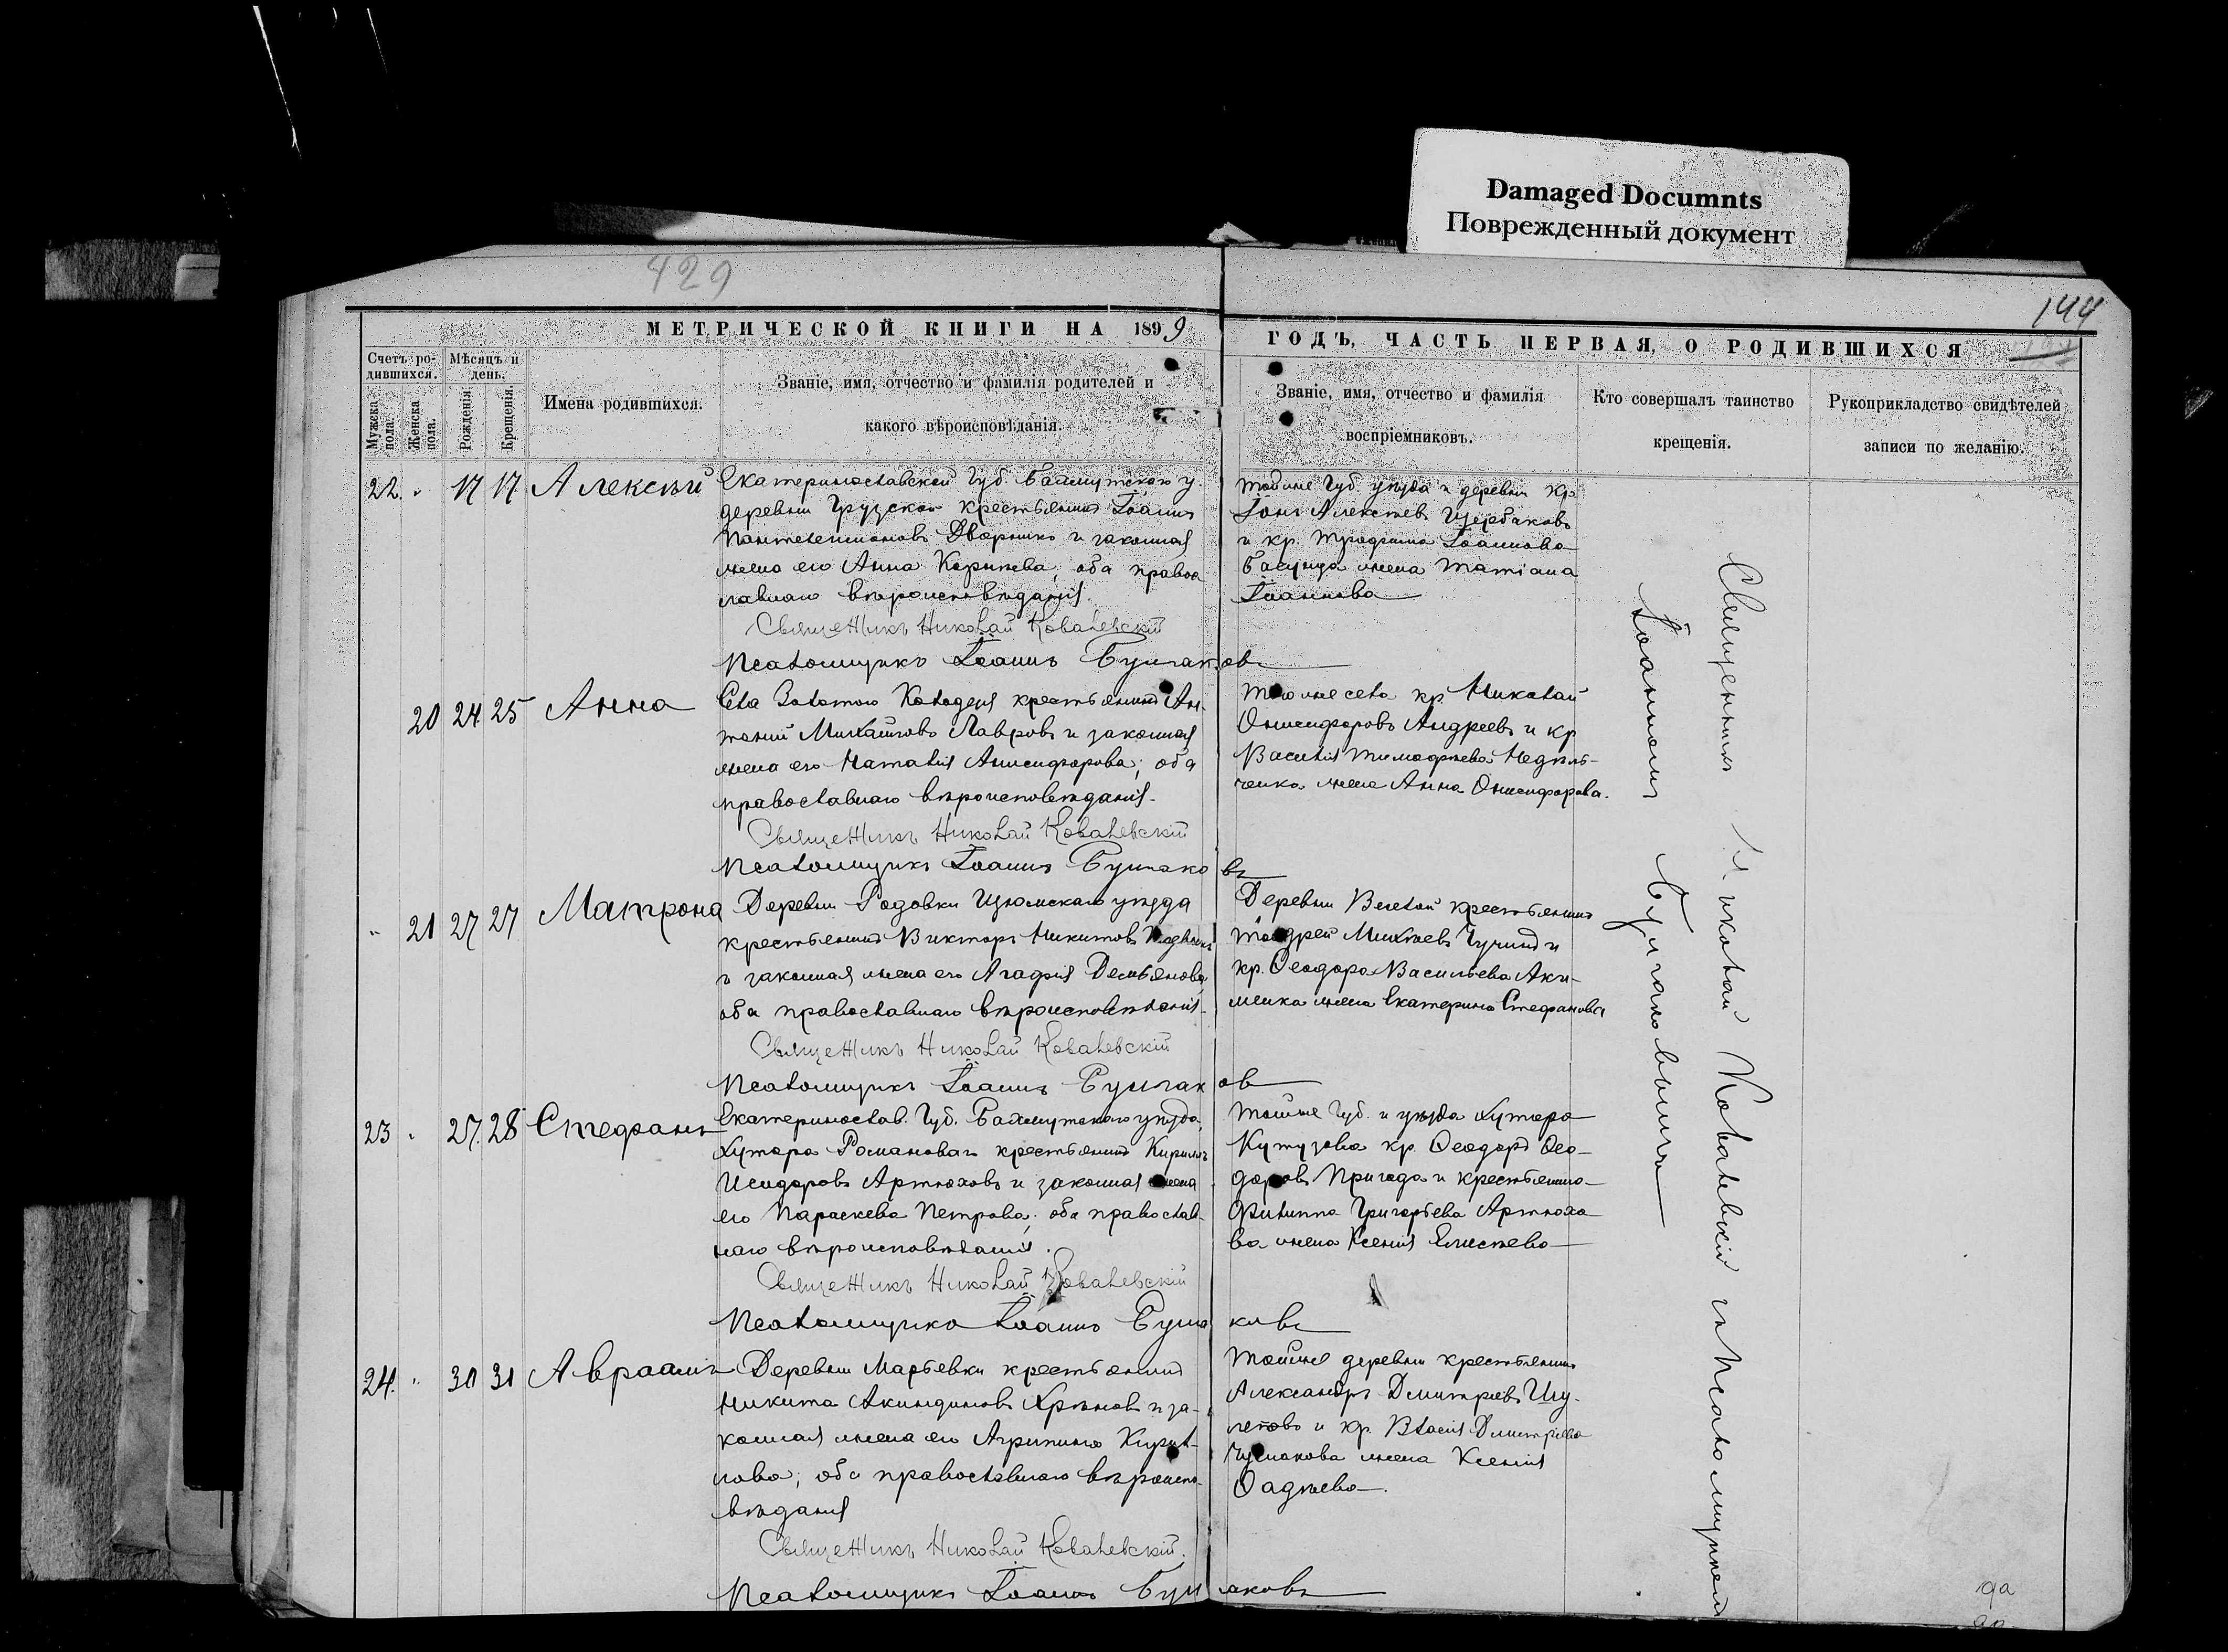 Damaged Documnts
Поврежденный документ
429
144
МЕТРИЧЕСКОЙ КНИГИ НА 1899
ГОДЪ, ЧАСТЬ ПЕРВАЯ, О РОДИВШИХСЯ
Счетъ ро-
дившихся.
Мѣсяцъ и
день.
Мужска
пола.
Женска
пола.
Рожденія.
Крещенія.
Имена родившихся.
Званіе, имя, отчество и фамилія родителей и
какого вѣроисповѣданія.
Званіе, имя, отчество и фамилія
воспріемниковъ.
Кто совершалъ таинство
крещенія.
Рукоприкладство свидѣтелей
записи по желанію.
22. " 17 17 Алексѣй
Екатеринославской Губ. Бахмутскаго у.
деревни Грузской крестьянинъ Іоаннъ
Пантелеимоновъ Дворнико и законная
жена его Анна Корнѣева; оба правос
лавнаго вѣроисповѣданія.
Священникъ Николай Ковалевскій
Псаломщикъ Іоаннъ Булгаковъ
тойже Губ. уѣзда и деревни кр.
Алексѣевъ Щербаковъ
и кр. Трофима Іоаннова
жена Татіана
Іоаннова
20 24 25 Анна
Села Золотого Колодезя крестьянинъ Ан-
тоній Михайловъ Лавровъ и законная
жена его Наталія Анисифорова; оба
православнаго вѣроисповѣданія.
Священникъ Николай Ковалевскій
Псаломщикъ Іоаннъ Булгаковъ
того же села кр. Николай
Онисифоровъ Андреевъ и кр
Василія Тимофѣева Недѣль-
ченка жена Анна Онисифорова.
" 21 27 27 Матрона
Деревни Родовки Изюмскаго уѣзда
крестьянинъ Викторъ Никитовъ
и законная жена его Агафія Демьянова,
оба православнаго вѣроисповѣданія.
Священникъ Николай Ковалевскій
Псаломщикъ Іоаннъ Булгаковъ
Деревни Веселой крестьянинъ
Михѣевъ и
кр. Ѳеодора Васильева Аки-
менка жена Екатерина Стефанова
23 " 27. 28 Стефанъ
Екатеринослав. Губ. Бахмутскаго уѣзда,
Хутора Романовач крестьянинъ Кириллъ
Исидоровъ Артюховъ и законная жена
его Параскева Петрова; оба православ-
наго вѣроисповѣданія.
Священникъ Николай Ковалевскій
Псаломщикъ Іоаннъ Булгаковъ
тойже Губ. и уѣзда Хутора
Кутузова кр. Ѳеодоръ Ѳео-
доровъ Пригода и крестьянина
Филиппа Григорьева Артюхо
ва жена Ксенія Елисѣева
24. " 30 31 Авраамъ
Деревни Марьевки крестьянинъ
Никита Акиндиновъ Хрѣновъ и за-
конная жена его Агрипина Кирил-
лова; оба православнаго вѣроиспо-
вѣданія
Священникъ Николай Ковалевскій.
Псаломщикъ Іоаннъ Булгаковъ
тойже деревни крестьянинъ
Александръ Дмитріевъ Шу-
леповъ и кр. Власія Дмитріева
Чумакова жена Ксенія
Ѳадѣева.
Священникъ Николай Ковалевскій съ Псаломщикомъ
Іоанномъ Булгаковымъ